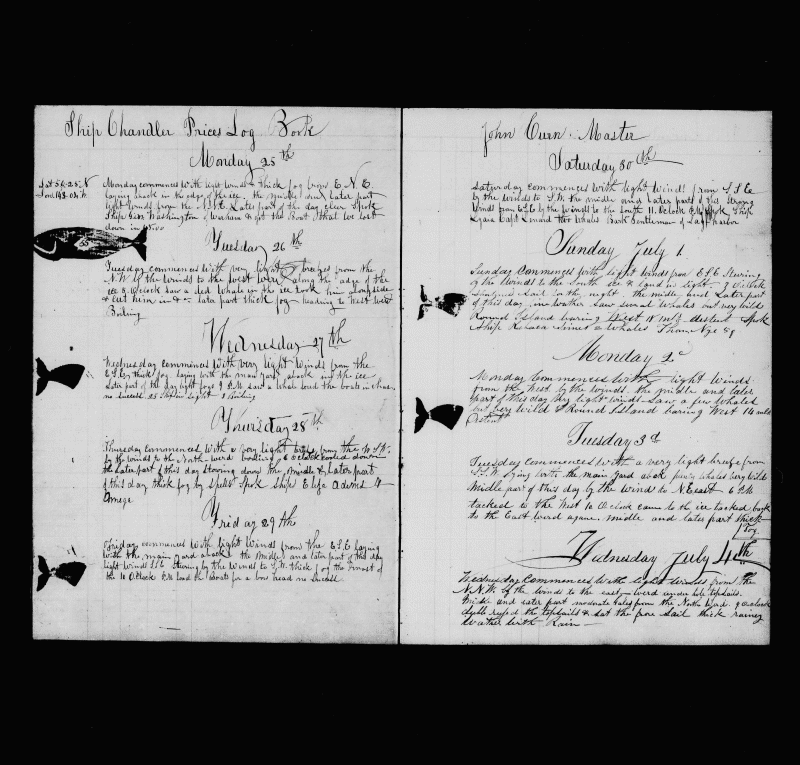 Ship Chandler Prices Log Book
Monday 25th
Lat 54-25 N
Monday commences with light winds & thick fog from E N E
laying aback in the edge of the ice. the middle and later part
light winds from the Later part of the day clear Spoke
Ship Geo Washington of Wareham & got the Boat that we lost
down in
55
Tuesday 26th
Tuesday commences with very light breezes from the
N.W. by the winds to the west ward along the edge of the
ice 8 O,clock saw a ded whale in the ice took him alongside
& cut him in & later part thick fog heading to west ward
Boiling
Wednesday 27th
Wednesday commences with very light winds from the
E.S.E. thick fog laying with the main yard aback in the ice
Later part of the day light fogs 9 P.M saw a whale lowd the boats in chase
no success 25 Ships in sight Boiling
Thursday 28th
Thursday commences with a very light from the W.S.W.
by the winds to the North-werd boiling 6 Oclock cooled down
the Later part of this day Steering down the middle & Later part
of this day thick fog by Spells Spok Ship Eliza Adems &
Omega
Friday 29th
Friday commences with light winds from the E.S.E laying
with the main yard aback the middle and later part of this day
light winds S.S.E. Stering by the winds to S.W. thick fog the
the 10 O,Clock P.M lowd the boats for a bow head no success
John Curn Master
Saturday 30th
Saturday commences with light winds from S.S.E.
by the winds to S.W the middle and later parts of this Strong
winds from E.S.E by the winds to the South 11 Oclock P.M Spok Ship
Capt Lenard two whales Bark Gentleman of Sag harbor
Sunday July 1
Sunday commences with light winds from E.S.E Stering
by the winds to the South ice & land in light 7 O,Clock
Sail in the night the middle and Later part
of this day in water saw several whales but very wild
Round Island baring West 18 mls distent Spok
Ship whales
Monday 2d
Monday Commences with light winds
from the West by the winds the middle and later
part of this day very light winds saw a few whales
but very wild Round Island baring West 14 mls
distent
Tuesday 3d
Tuesday commences with a very light breeze from
S.S.W lying with the main yard aback plenty whales very wild
Middle part of this day by the wind to N.east 6 P.M
tacked to the West 10 Oclock came to the ice tacked back
to the East werd again. middle and later part thick
Fog
Wednesday July 4th
Wednesday Commences with light winds from the
N.N.W. by the winds to the east-werd under hole topsails.
Midle and later part moderate Gales from the North ward 9 Oclock
duble refed the topsails & sat the fore Sail thick rainey
Wather with Rain